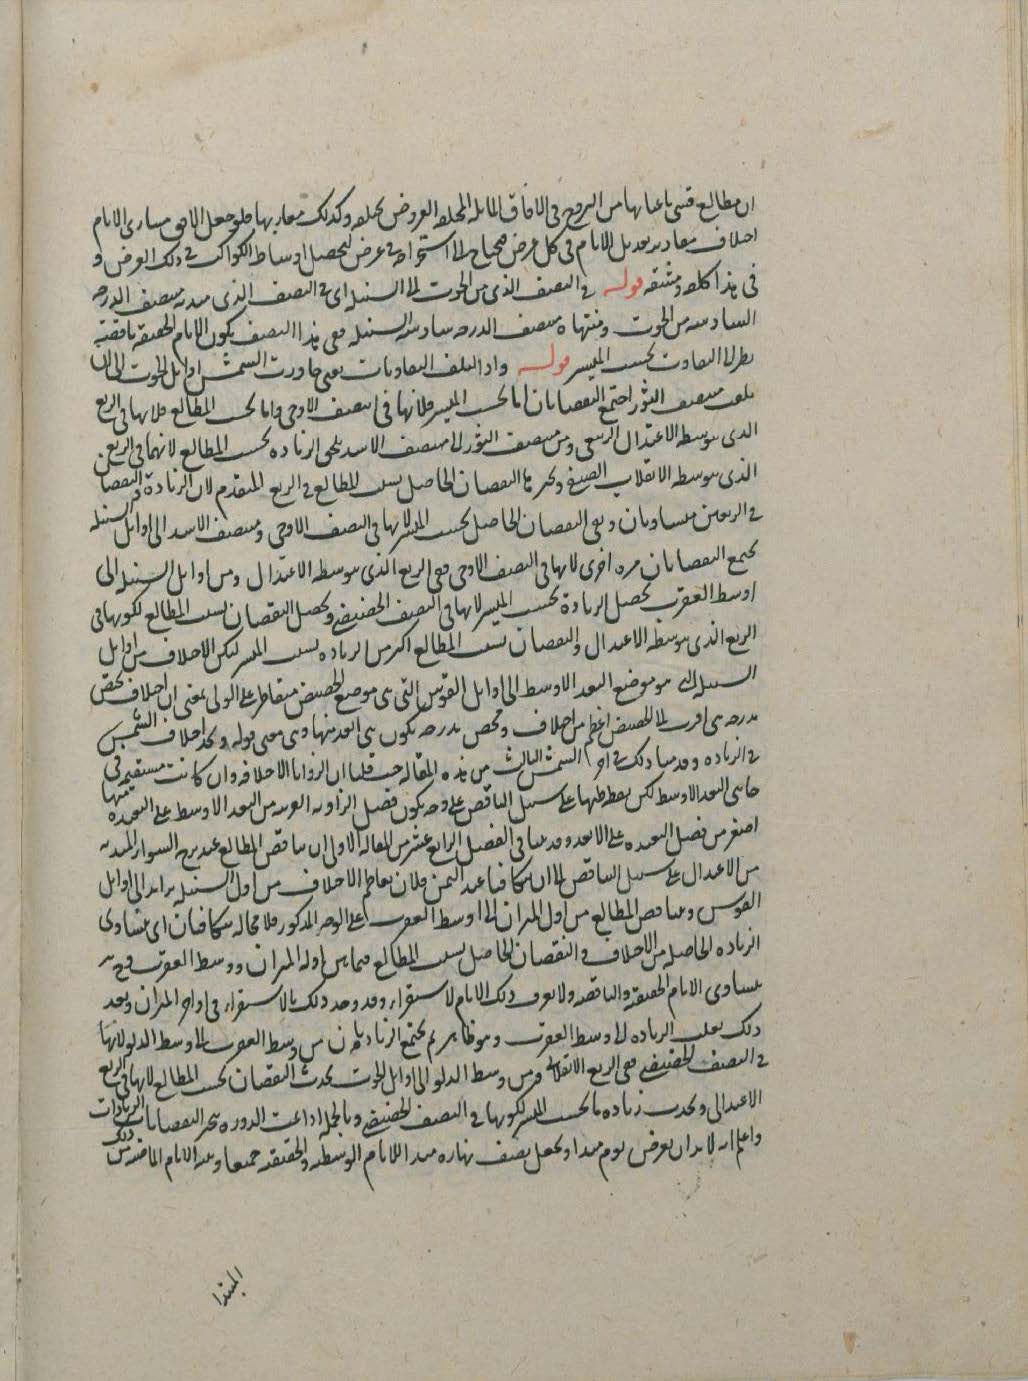 ان مطالع قسي باعيانها من البروج في الافاق المائلة المختلفة العروض مختلفة وكذلك مغاربها فلو جعل الافق مبادي الايام
اختلاف مقادير تعديل الايام في كل عرض فيحتاج الى استخراجه في عرض لتحصيل اوساط الكواكب في ذلك العرض و
في هذا كلفة ومشقة قوله في النصف الذي من الحوت الى السنبلة اي في النصف الذي مبدئه منتصف الدرجة
السادسة من الحوت ومنتهاه منتصف الدرجة سادسة السنبلة ففي هذا النصف يكون الايام الحقيقية ناقصة
نظرا الى التفاوت بحسب المسير قوله واذا اختلف التفاوتات يعني جاوزت الشمس اوايل الحوت الى ان
بلغت منتصف الثور اجتمع النقصانان اما بحسب المسير فلانها في النصف الاوجي واما بحسب المطالع فلانها في الربع
الذي يتوسطه الاعتدال الربيعي ومن منتصف الثور الى منتصف الاسد يلحق الزيادة بحسب المطالع لانها في الربع
الذي يتوسطه الانقلاب الصيفي وينجبر بها النقصان الحاصل بسبب المطالع في الربع المتقدم لان الزيادة والنقصان
في الربعين متساويان وبقي النقصان الحاصل بحسب المسير لانها في النصف الاوجي ومنتصف الاسد الى اوايل السنبلة
يجتمع النقصانان مرة اخرى لانها في النصف الاوجي وفي الربع الذي يتوسطه الاعتدال ومن اوايل السنبلة الى
اوسط العقرب تحصل الزيادة بحسب المسير لانها في النصف الحضيضي ويحصل النقصان بسبب المطالع لكونها في
الربع الذي يتوسطه الاعتدال والنقصان بسبب المطالع اكثر من الزيادة بسبب المسير لكن الاختلاف من اوايل
السنبلة التي هو موضع البعد الاوسط الى اوايل القوس التي هي موضع الحضيض متعاظم على الولى بمعنى ان اختلافا يختص
بدرجة هي اقرب الى الحضيض اعظم من اختلاف يختص بدرجة يكون هي ابعد منها وهي معنى قوله وتجد اختلاف الشمس
في الزيادة وقد مبادلك في اخر الشمس الثالث من هذه المقالة حيث قلنا ان الزوايا الاختلافية وان كانت مستقيمة في
جانبي البعد الاوسط لكن يعظم ظلها على سبيل التناقص على وجه يكون فضل الزاوية القريبة من البعد الاوسط على البعيدة منها
اصغر من فضل البعيدة على الابعد وقد بينا في الفصل الرابع عشر من المقالة الاولى ان تناقص المطالع عند برج السواء المبدئة
من الاعتدال على سبيل التناقص الى ان يتكافيا عند الثمن فلان تعاظم الاختلاف من اول السنبلة يزايد الى اوايل
القوس وتناقص المطالع من اول الميزان الى اوسط العقرب على الوجه المذكور فلا محالة يتكافئان اي يتساوى
الزيادة الحاصلة من الاختلاف والنقصان الحاصل بسبب المطالع فيما بين اول الميزان ووسط العقرب فح
يتساوى الايام الحقيقية والناقصة ولا يعرف ذلك الايام لاستقراء وقد وجد ذلك بالاستقراء في اواخر الميزان وبعد
ذلك يغلب الزيادة الى وسط العقرب وهو ظاهر ثم يجتمع الزيادتان من وسط العقرب الى وسط الدلو لانها
في النصف الحضيضي وفي الربع الانقلابي ومن وسط الدلو الى اوايل الحوت يحدث النقصان بحسب المطالع لانها في الربع
الاعتدالي ويحدث زيادة ما بحسب المسير لكونها في النصف الحضيضي وبالجملة اذا تمت الدورة ينجبر النقصانات بالزيادات
واعلم انه لا بد ان يفرض يوم مبدا ويجعل نصف نهاره مبدا للايام الوسطية والحقيقية جميعا وعد الايام الماضية من ذلك
المبتدا